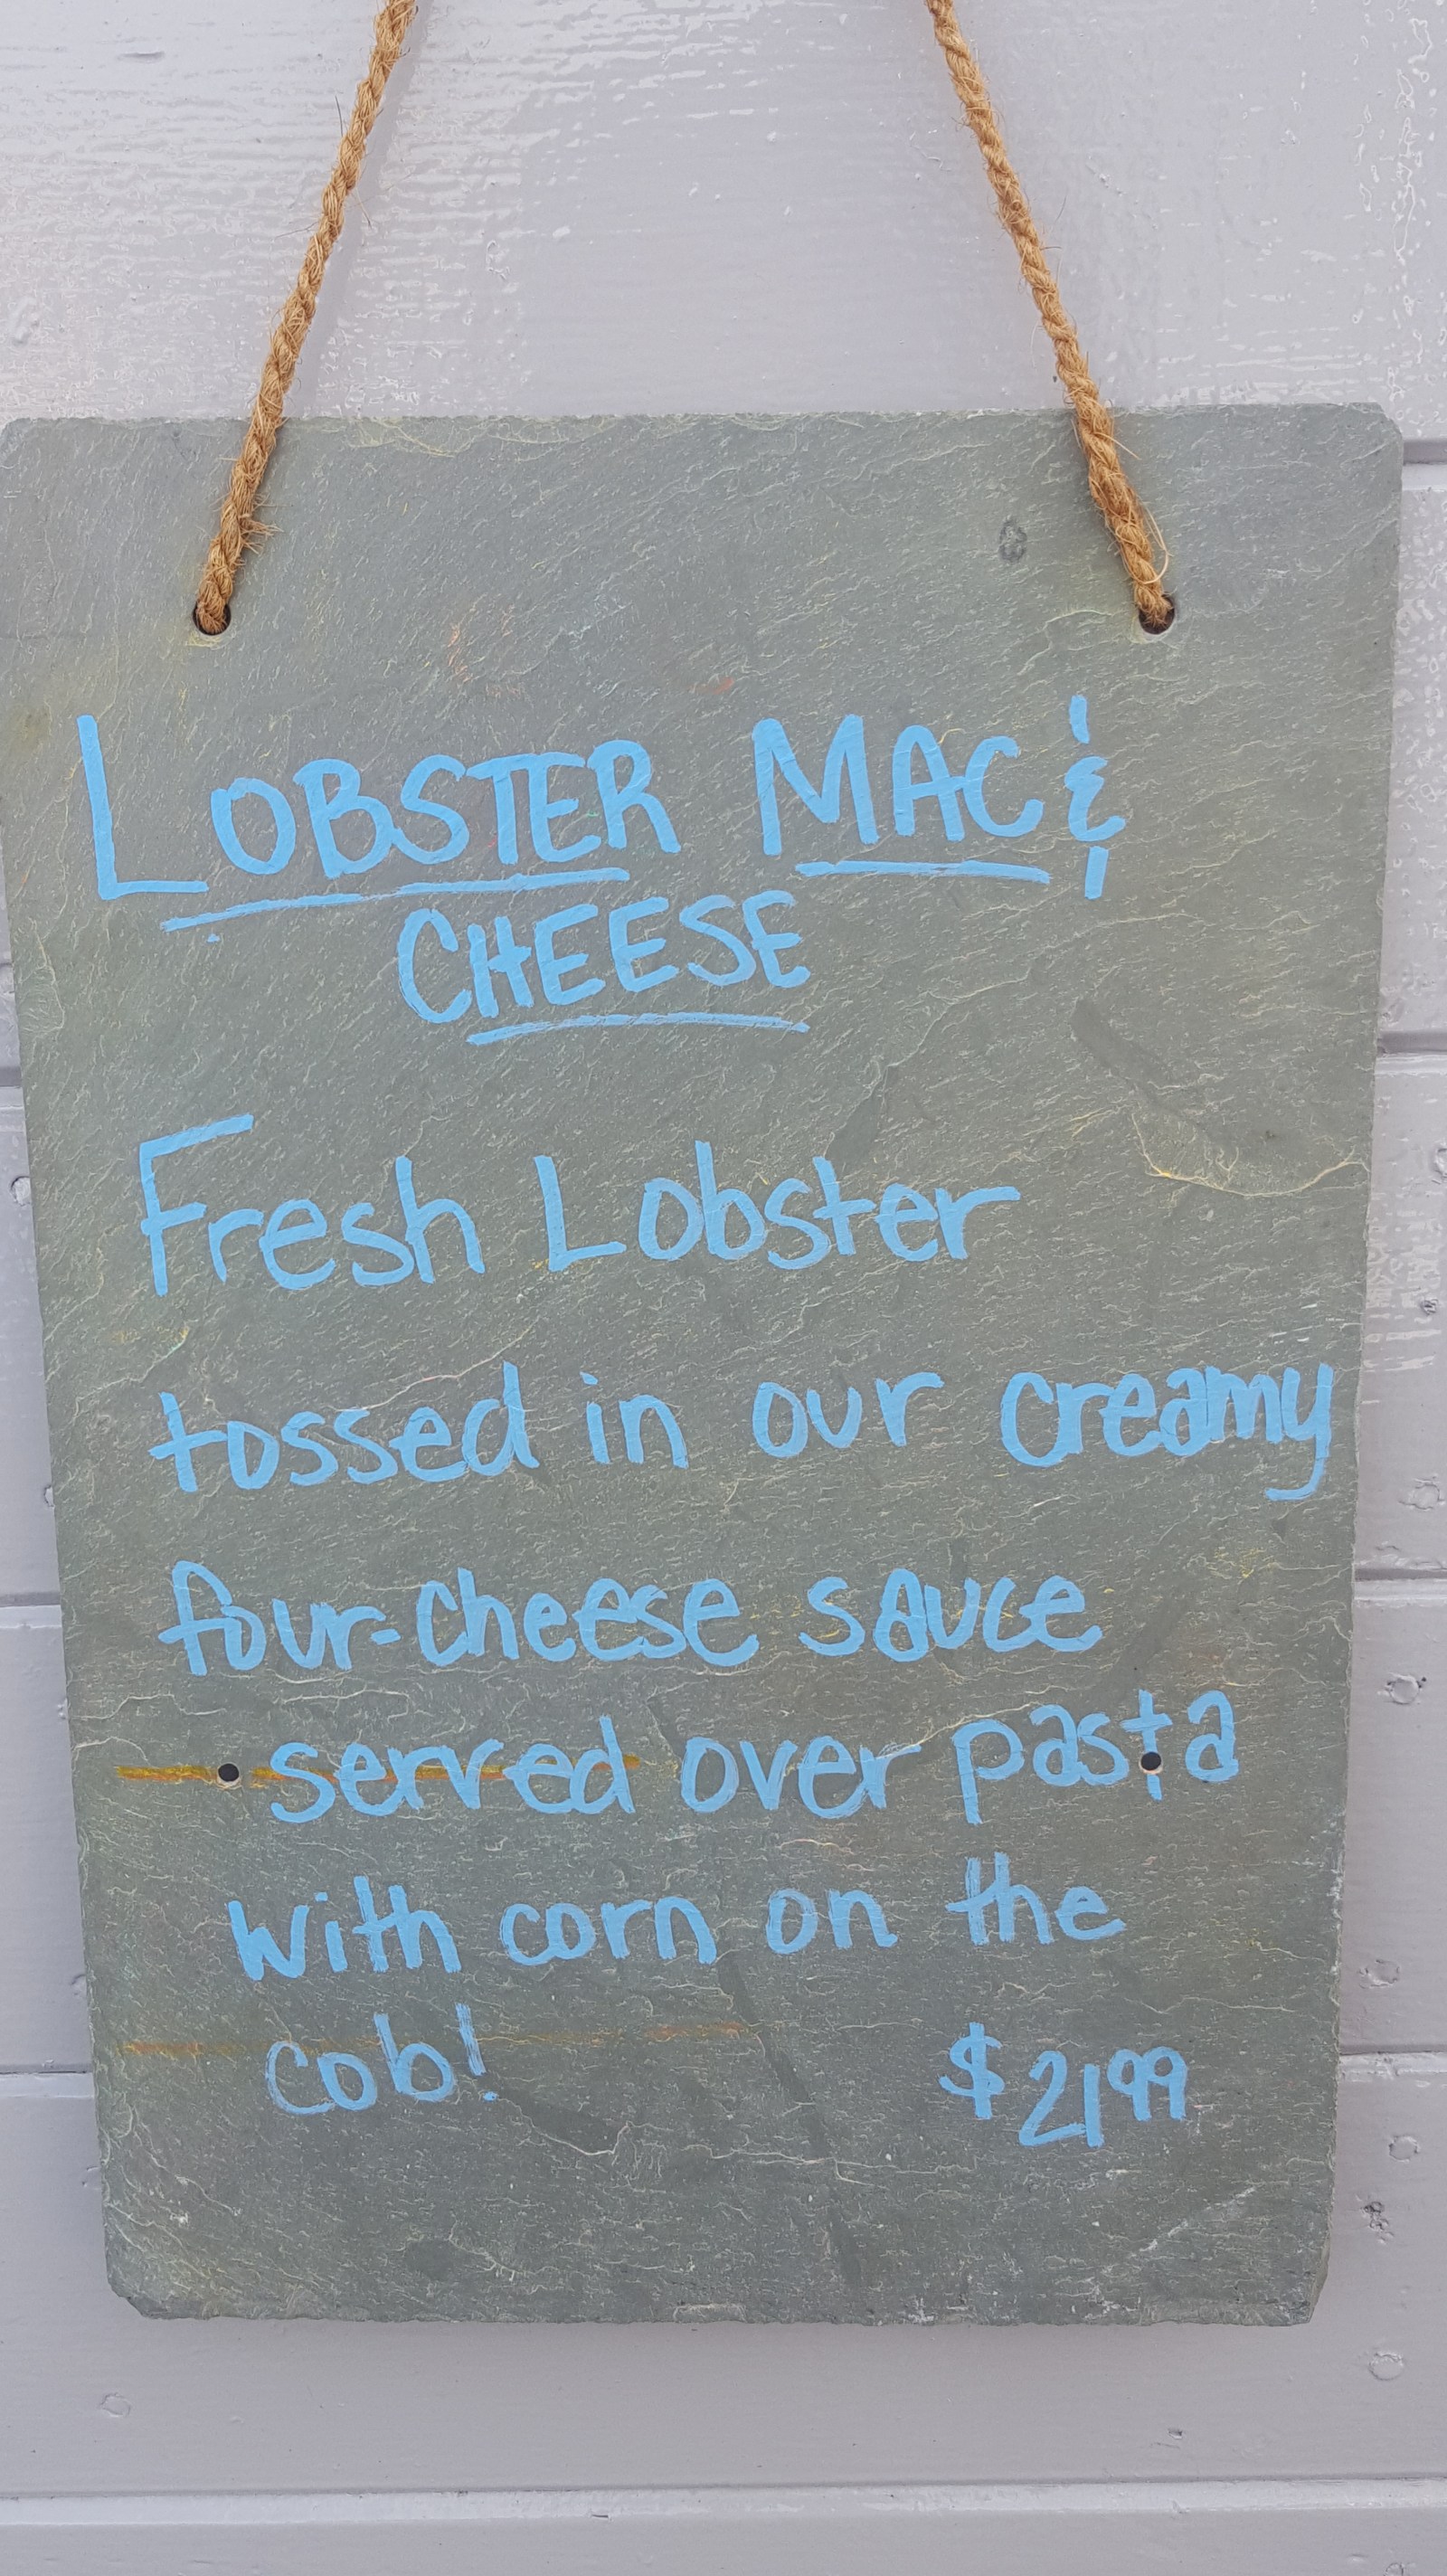 LOBSTER MAC &
CHEESE
Fresh Lobster
tossed in our creamy
four-cheese sauce
served over pasta
with corn on the
cob! $2199